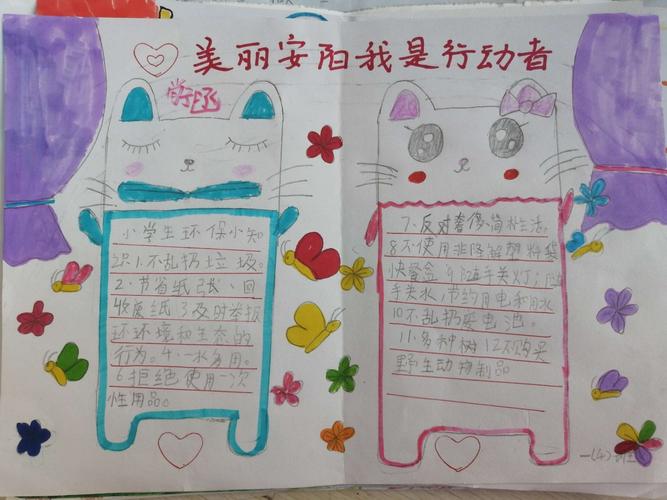 美丽安阳我是行动者
小学生环保小知
识.1.不乱扔垃圾。
2.节省纸张、回
收废纸了3及时举报
环环境和生态的
行为。4.一水多用。
6拒绝使用一次
性用品。
7.反对奢侈简朴生活。
8不使用非降解塑料袋
快餐盒9随手关灯;随
手关水,节约用电和用水
10不乱扔废电池。
11多种树12不购买
野生动物制品
一(4)